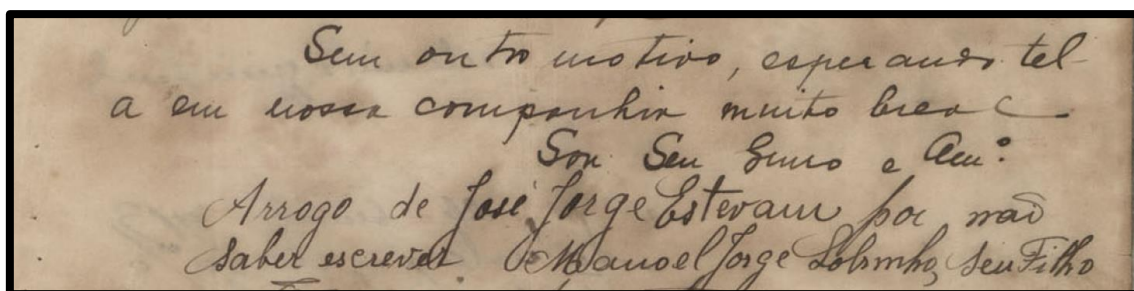 Sem outro motivo, esperando tel-
a em nossa companhia muito breve
Sou Seu Genro e Am.º
Arrogo de José Jorge Estevam por não
saber escrever Manoel Jorge Sobrinho, seu Filho